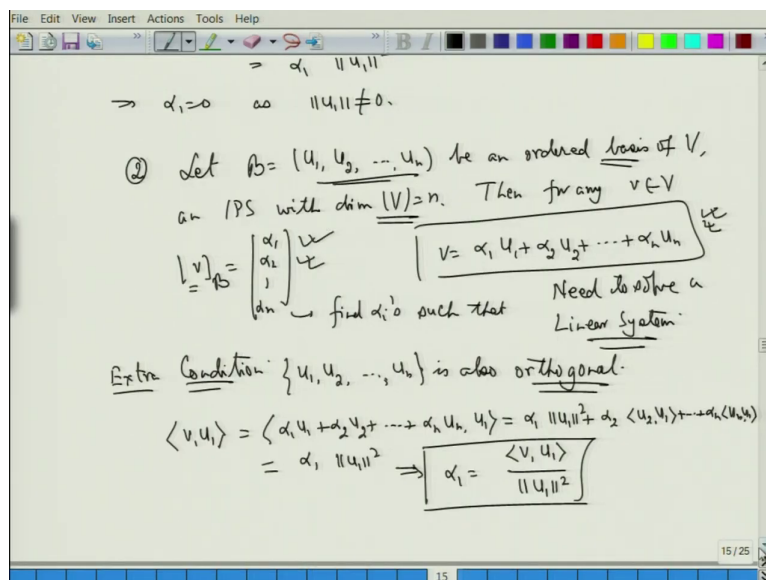 File Edit View Insert Actions Tools Help
= α₁ ||u₁||²
⇒ α₁=0 as ||u₁|| ≠ 0.
② Let B = (u₁, u₂, ..., uₙ) be an ordered basis of V,
an IPS with dim (V)=n. Then for any v∈V
[v]_B = [α₁ α₂ ⋮ αₙ] → find αᵢ's such that
v = α₁u₁ + α₂u₂ + ⋯ + αₙuₙ
Need to solve a
Linear System.
Extra Condition: {u₁, u₂, ..., uₙ} is also orthogonal.
⟨v,u₁⟩ = ⟨α₁u₁ + α₂u₂ + ⋯ + αₙuₙ, u₁⟩ = α₁ ||u₁||² + α₂ ⟨u₂,u₁⟩ + ⋯ + αₙ⟨uₙ,u₁⟩
= α₁ ||u₁||² ⇒ α₁ = ⟨v, u₁⟩ / ||u₁||²
15/25
15